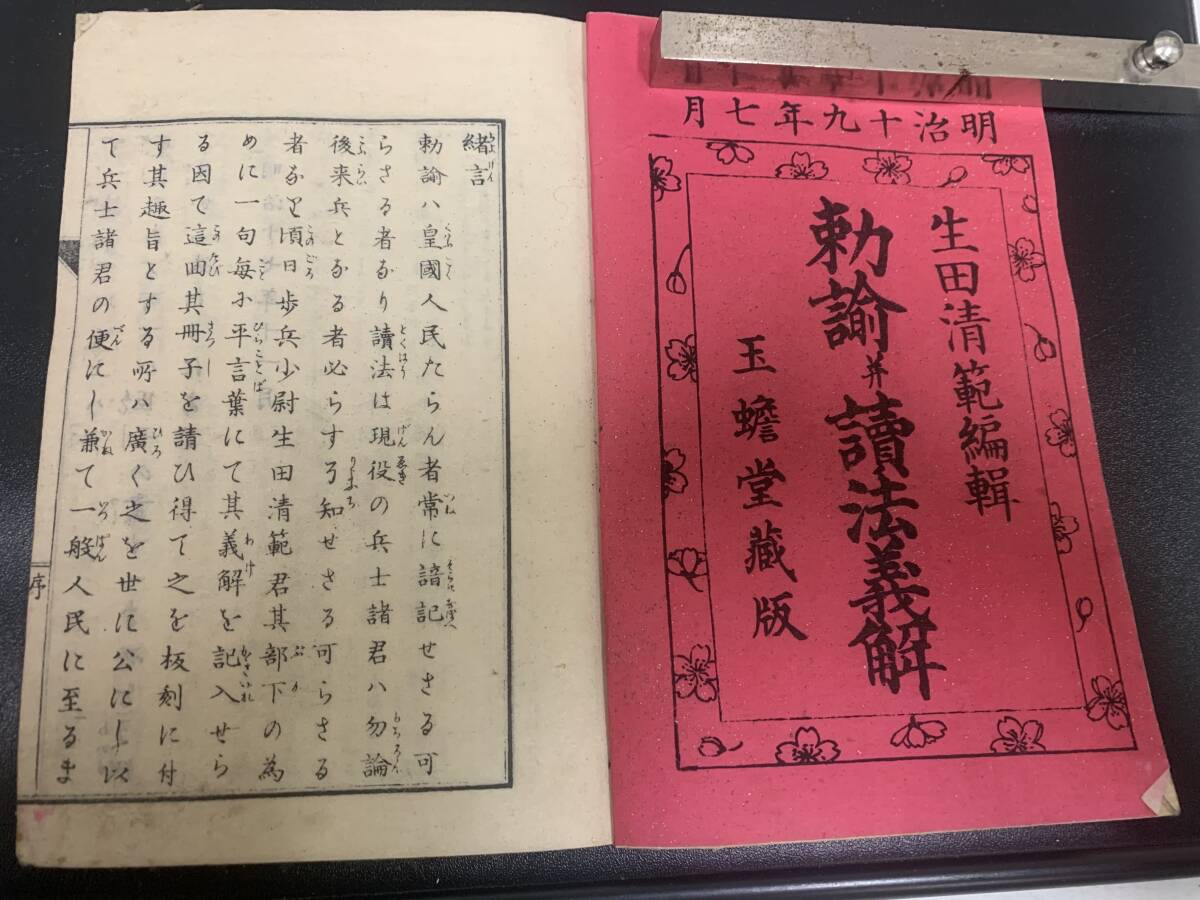 明治十九年七月
生田清範編輯
勅諭并讀法義解
玉蟾堂藏版
緒言
勅諭ハ皇國人民たらん者常に諳記せさる可
らさる者なり讀法は現役の兵士諸君ハ勿論
後来兵となる者必らす知せさる可らさる
者なり頃日歩兵少尉生田清範君其部下の為
めに一句毎に平言葉にて其義解を記入せら
る因て這回其冊子を請ひ得て之を板刻に付
す其趣旨とする所ハ廣く之を世に公にし以
て兵士諸君の便にし兼て一般人民に至るま
序